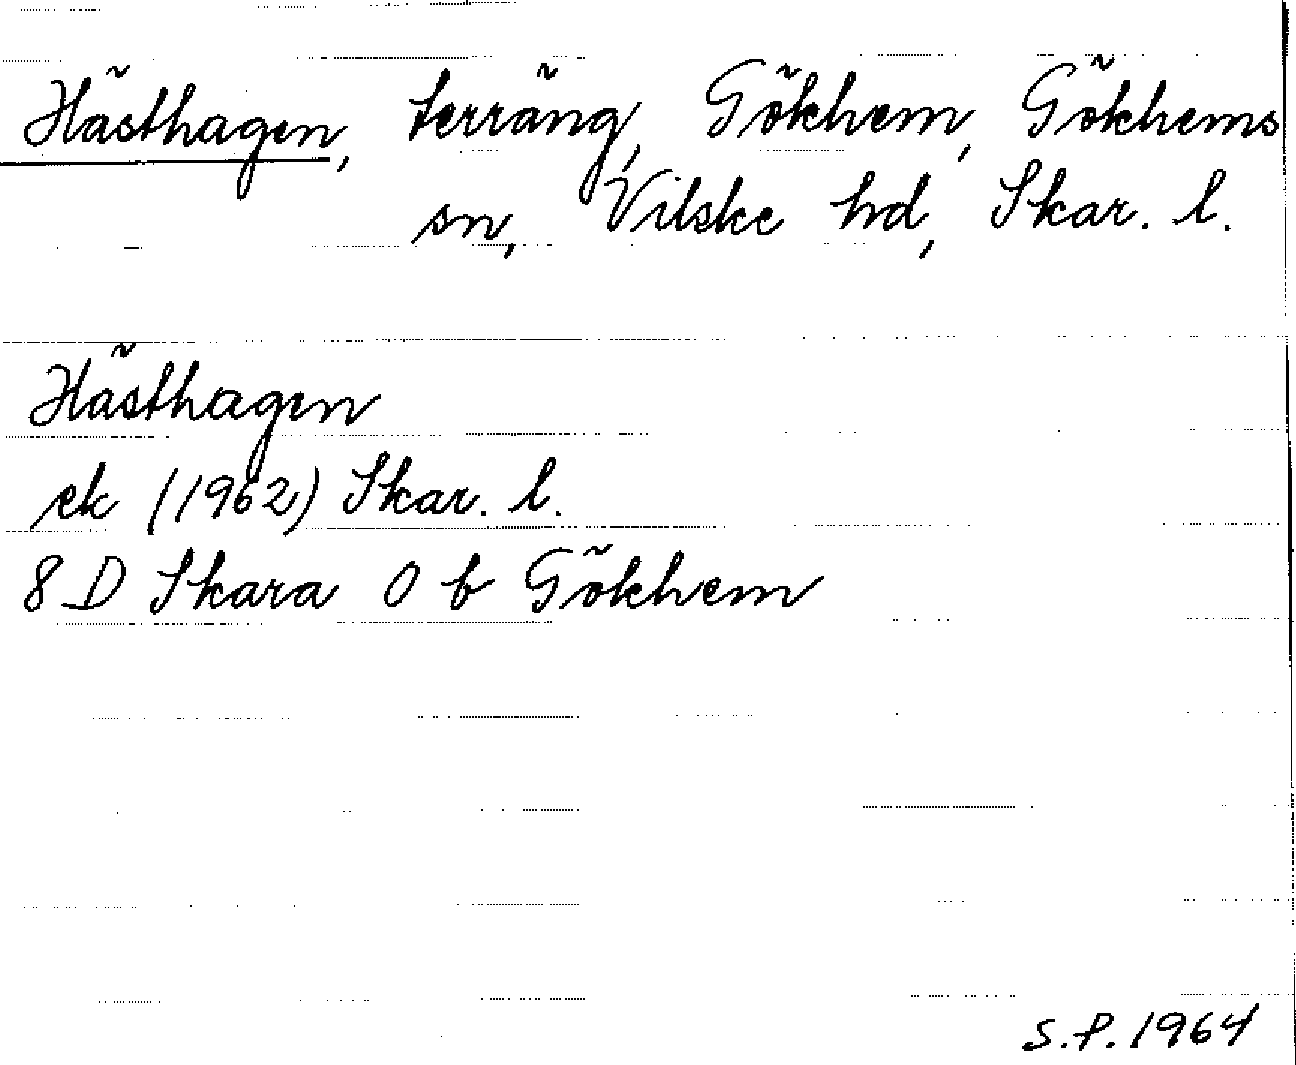 Hästhagen, terräng, Gökhem, Gökhems
sn, Vilske hd, Skar. l.
Hästhagen
ek (1962) Skar. l.
8 D Skara 0 b Gökhem
S.P. 1964